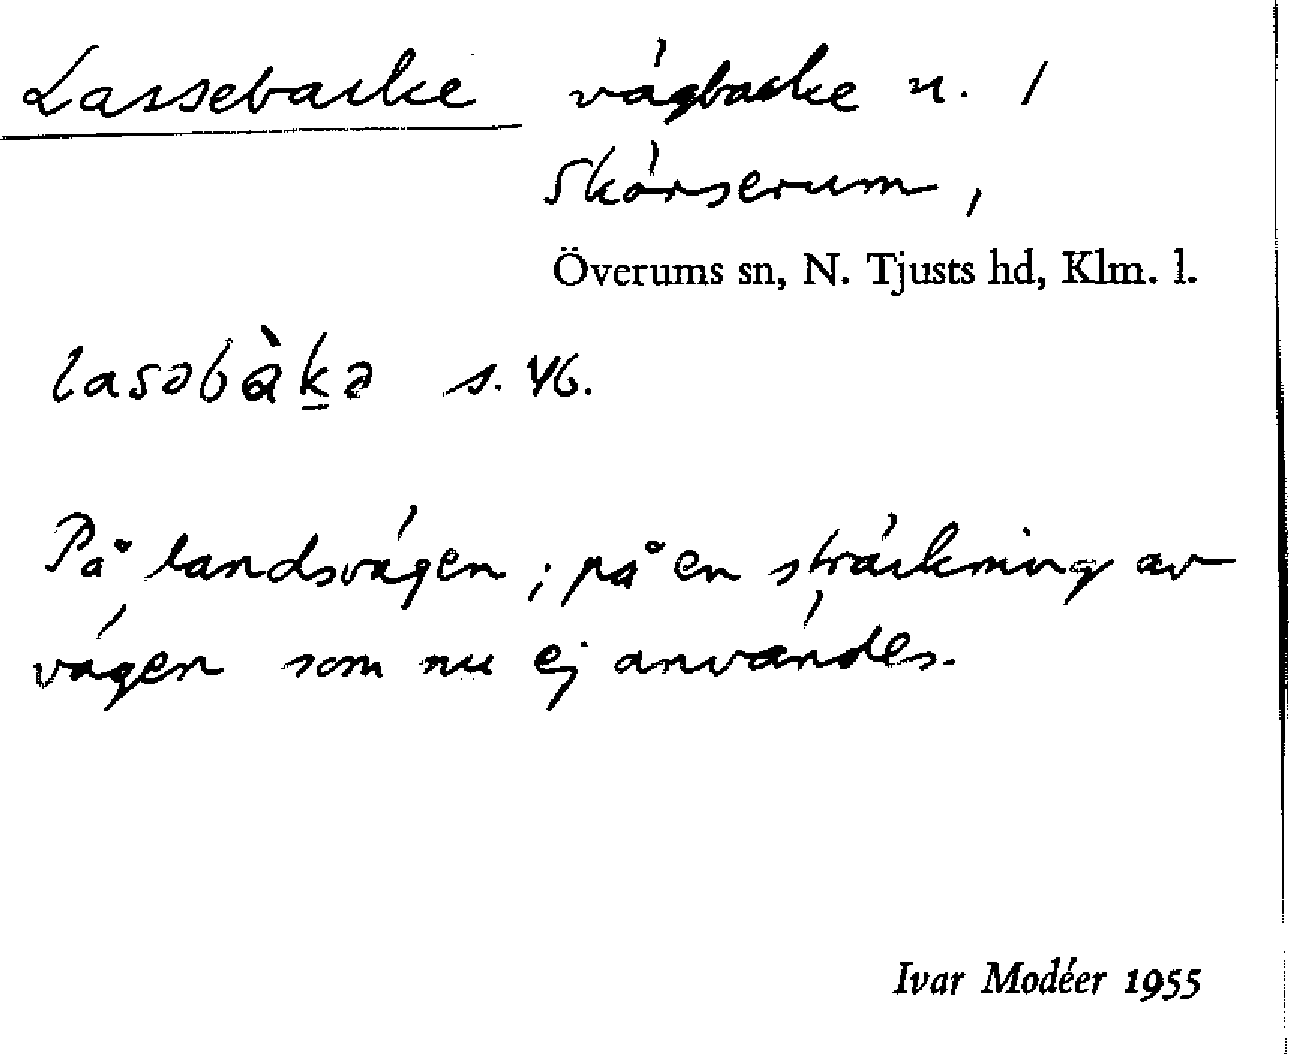 Lassebacke vägbacke n. /
Skärserum,
Överums sn, N. Tjusts hd, Klm. l.
lasəbàkə s. 46.
På landsvägen; på en sträckning av
vägen som nu ej användes.
Ivar Modéer 1955